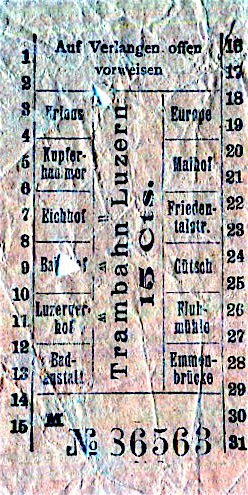 Auf Verlangen offen
vorweisen
1
2
3
4
5
6
7
8
9
10
11
12
13
14
15
Kupfer-
hammer
Eichhof
Luzerner-
hof
Bad-
anstalt
Trambahn Luzern
15 Cts.
Europe
Maihof
Frieden-
talstr.
Gütsch
Fluh-
mühle
Emmen-
brücke
16
17
18
19
20
21
22
23
24
25
26
27
28
29
30
31
M
№ 36563